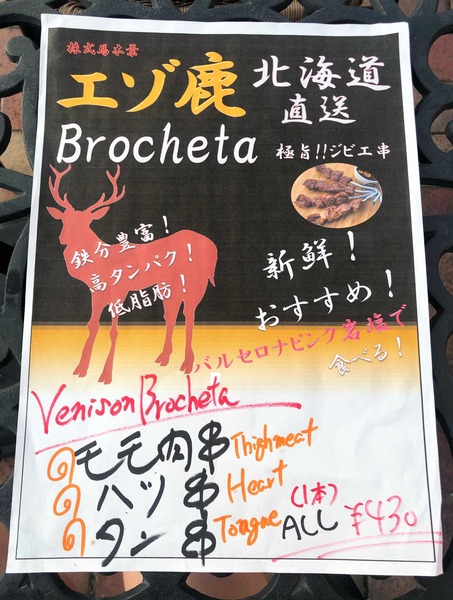 エゾ鹿
北海道
直送
Brocheta
極旨!!ジビエ串
鉄分豊富！
高タンパク！
低脂肪！
新鮮！
おすすめ！
バルセロナピンク岩塩で
食べる！
Venison Brocheta
モモ肉串 Thighmeat
ハツ串 Heart
タン串 Tongue
(1本)
ALL ¥430